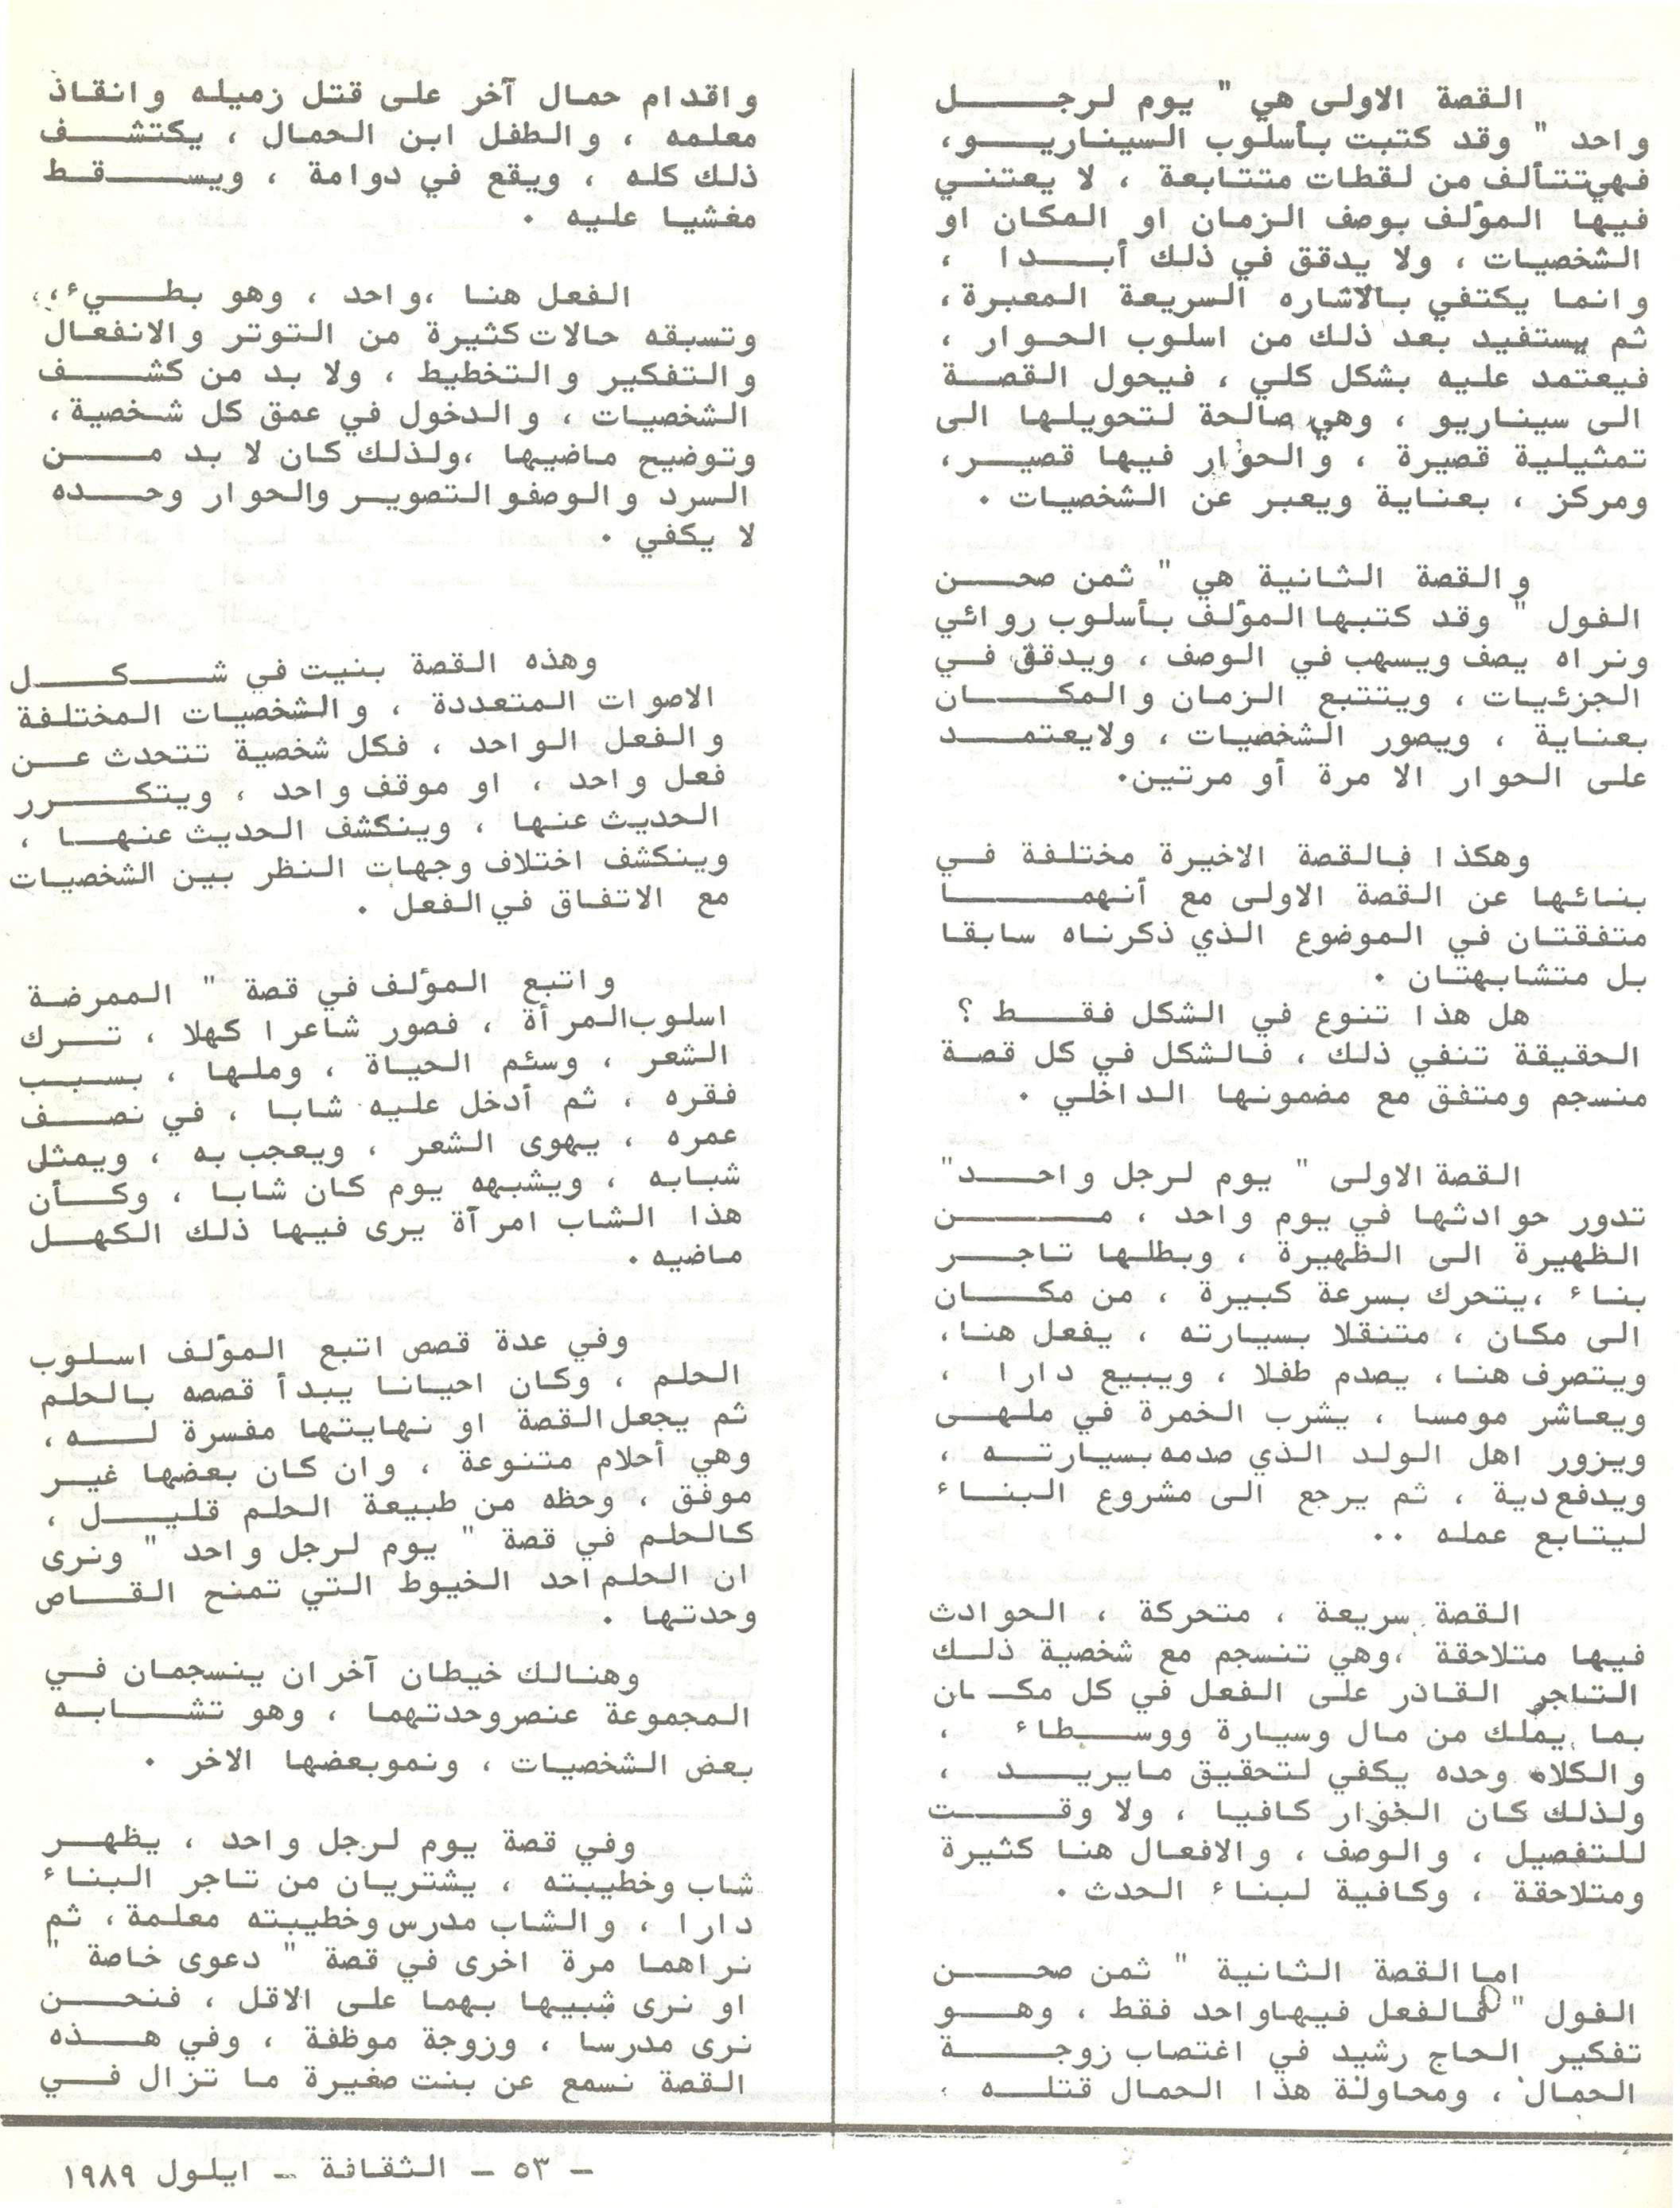 القصة الاولى هي " يوم لرجل
واحد " وقد كتبت بأسلوب السيناريو،
فهي تتألف من لقطات متتابعة ، لا يعتني
فيها المؤلف بوصف الزمان او المكان او
الشخصيات ، ولا يدقق في ذلك أبدا ،
وانما يكتفي بالاشاره السريعة المعبرة،
ثم يستفيد بعد ذلك من اسلوب الحوار ،
فيعتمد عليه بشكل كلي ، فيحول القصة
الى سيناريو ، وهي صالحة لتحويلها الى
تمثيلية قصيرة ، والحوار فيها قصير،
ومركز ، بعناية ويعبر عن الشخصيات .
والقصة الثانية هي " ثمن صحن
الفول " وقد كتبها المؤلف بأسلوب روائي
ونراه يصف ويسهب في الوصف ، ويدقق في
الجزئيات ، ويتتبع الزمان والمكان
بعناية ، ويصور الشخصيات ، ولايعتمد
على الحوار الا مرة أو مرتين.
وهكذا فالقصة الاخيرة مختلفة في
بنائها عن القصة الاولى مع أنهما
متفقتان في الموضوع الذي ذكرناه سابقا
بل متشابهتان .
هل هذا تنوع في الشكل فقط ؟
الحقيقة تنفي ذلك ، فالشكل في كل قصة
منسجم ومتفق مع مضمونها الداخلي .
القصة الاولى " يوم لرجل واحد"
تدور حوادثها في يوم واحد ، من
الظهيرة الى الظهيرة ، وبطلها تاجر
بناء ،يتحرك بسرعة كبيرة ، من مكان
الى مكان ، متنقلا بسيارته ، يفعل هنا،
ويتصرف هنا، يصدم طفلا ، ويبيع دارا ،
ويعاشر مومسا ، يشرب الخمرة في ملهى
ويزور اهل الولد الذي صدمه بسيارته ،
ويدفع دية ، ثم يرجع الى مشروع البناء
ليتابع عمله ..
القصة سريعة ، متحركة ، الحوادث
فيها متلاحقة ،وهي تنسجم مع شخصية ذلك
التاجر القادر على الفعل في كل مكان
بما يملك من مال وسيارة ووسطاء ،
والكلام وحده يكفي لتحقيق مايريد ،
ولذلك كان الحوار كافيا ، ولا وقت
للتفصيل ، والوصف ، والافعال هنا كثيرة
ومتلاحقة ، وكافية لبناء الحدث .
اما القصة الثانية " ثمن صحن
الفول " فالفعل فيها واحد فقط ، وهو
تفكير الحاج رشيد في اغتصاب زوجة
الحمال ، ومحاولة هذا الحمال قتله ،
واقدام حمال آخر على قتل زميله وانقاذ
معلمه ، والطفل ابن الحمال ، يكتشف
ذلك كله ، ويقع في دوامة ، ويسقط
مغشيا عليه .
الفعل هنا ،واحد ، وهو بطيء ،
وتسبقه حالات كثيرة من التوتر والانفعال
والتفكير والتخطيط ، ولا بد من كشف
الشخصيات ، والدخول في عمق كل شخصية،
وتوضيح ماضيها ،ولذلك كان لا بد من
السرد والوصف والتصوير والحوار وحده
لا يكفي .
وهذه القصة بنيت في شكل
الاصوات المتعددة ، والشخصيات المختلفة
والفعل الواحد ، فكل شخصية تتحدث عن
فعل واحد ، او موقف واحد ، ويتكرر
الحديث عنها ، وينكشف الحديث عنها ،
وينكشف اختلاف وجهات النظر بين الشخصيات
مع الاتفاق في الفعل .
واتبع المؤلف في قصة " الممرضة
اسلوب المرأة ، فصور شاعرا كهلا ، ترك
الشعر ، وسئم الحياة ، وملها ، بسبب
فقره ، ثم أدخل عليه شابا ، في نصف
عمره ، يهوى الشعر ، ويعجب به ، ويمثل
شبابه ، ويشبهه يوم كان شابا ، وكأن
هذا الشاب امرآة يرى فيها ذلك الكهل
ماضيه .
وفي عدة قصص اتبع المؤلف اسلوب
الحلم ، وكان احيانا يبدأ قصصه بالحلم
ثم يجعل القصة او نهايتها مفسرة له،
وهي أحلام متنوعة ، وان كان بعضها غير
موفق ، وحظه من طبيعة الحلم قليل ،
كالحلم في قصة " يوم لرجل واحد " ونرى
ان الحلم احد الخيوط التي تمنح القاص
وحدتها .
وهنالك خيطان آخران ينسجمان في
المجموعة عنصر وحدتهما ، وهو تشابه
بعض الشخصيات ، ونمو بعضها الاخر .
وفي قصة يوم لرجل واحد ، يظهر
شاب وخطيبته ، يشتريان من تاجر البناء
دارا ، والشاب مدرس وخطيبته معلمة، ثم
نراهما مرة اخرى في قصة " دعوى خاصة "
او نرى شبيها بهما على الاقل ، فنحن
نرى مدرسا ، وزوجة موظفة ، وفي هذه
القصة نسمع عن بنت صغيرة ما تزال في
- ٥٣ - الثقافة - ايلول ١٩٨٩